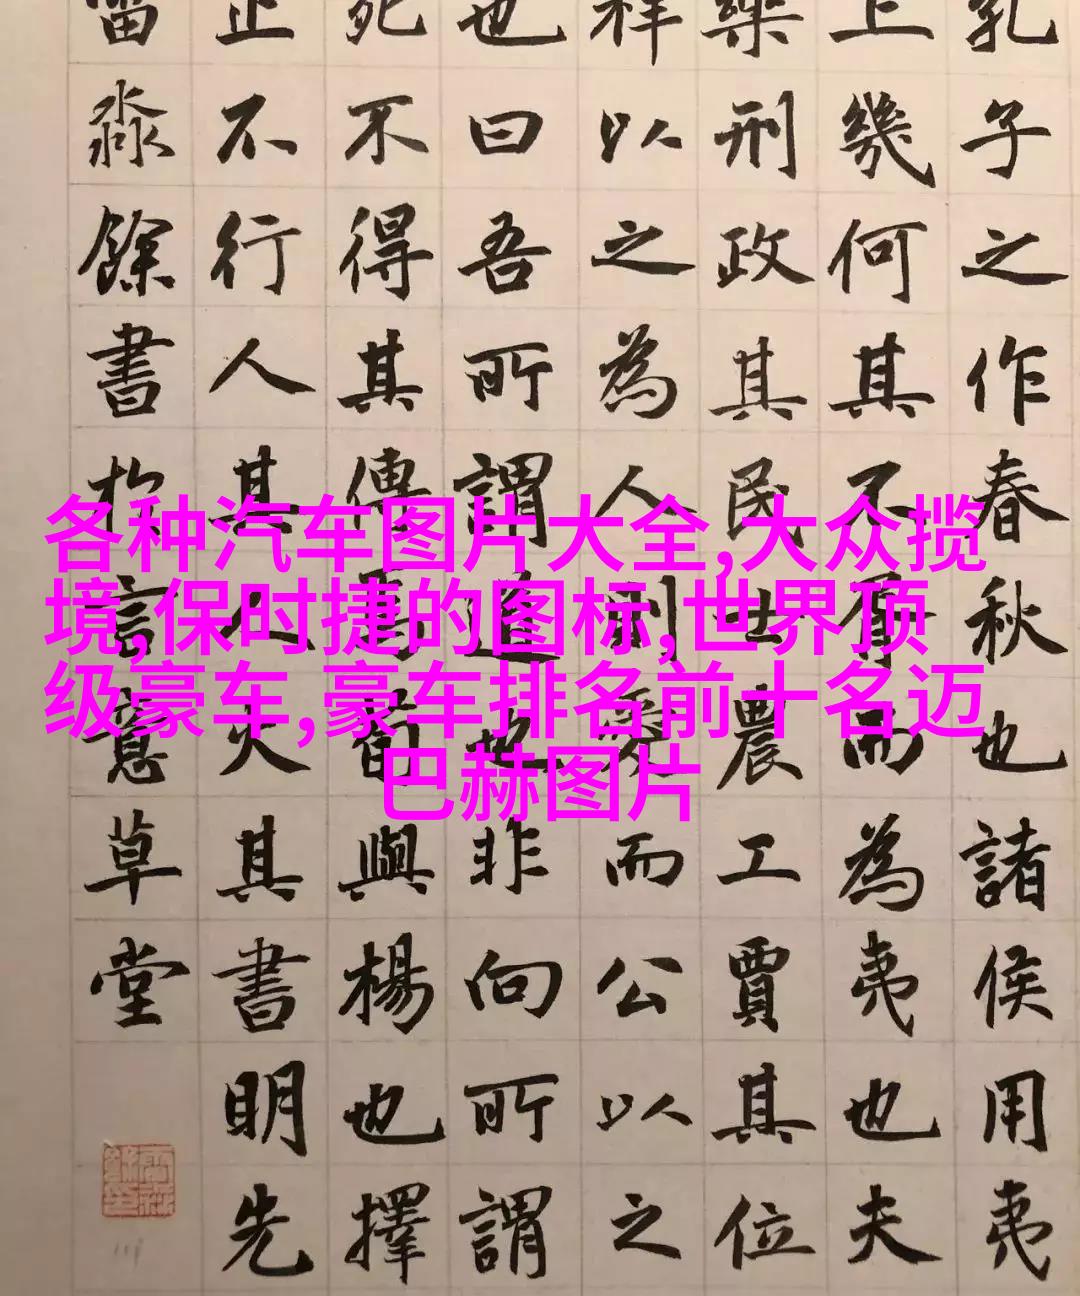 各种汽车图片大全,大众揽
境,保时捷的图标,世界顶
级豪车,豪车排名前十名迈
巴赫图片
孔子之作春秋也諸侯用夷
上幾何其不胥而為夷也夫
樂刑政其民士農工賈其位
祥以之為人則愛而公以之
也曰吾所謂道也非向所謂
死不得其傳焉荀與楊也擇
止不行人其人火其書明先
淼餘書於言意草堂